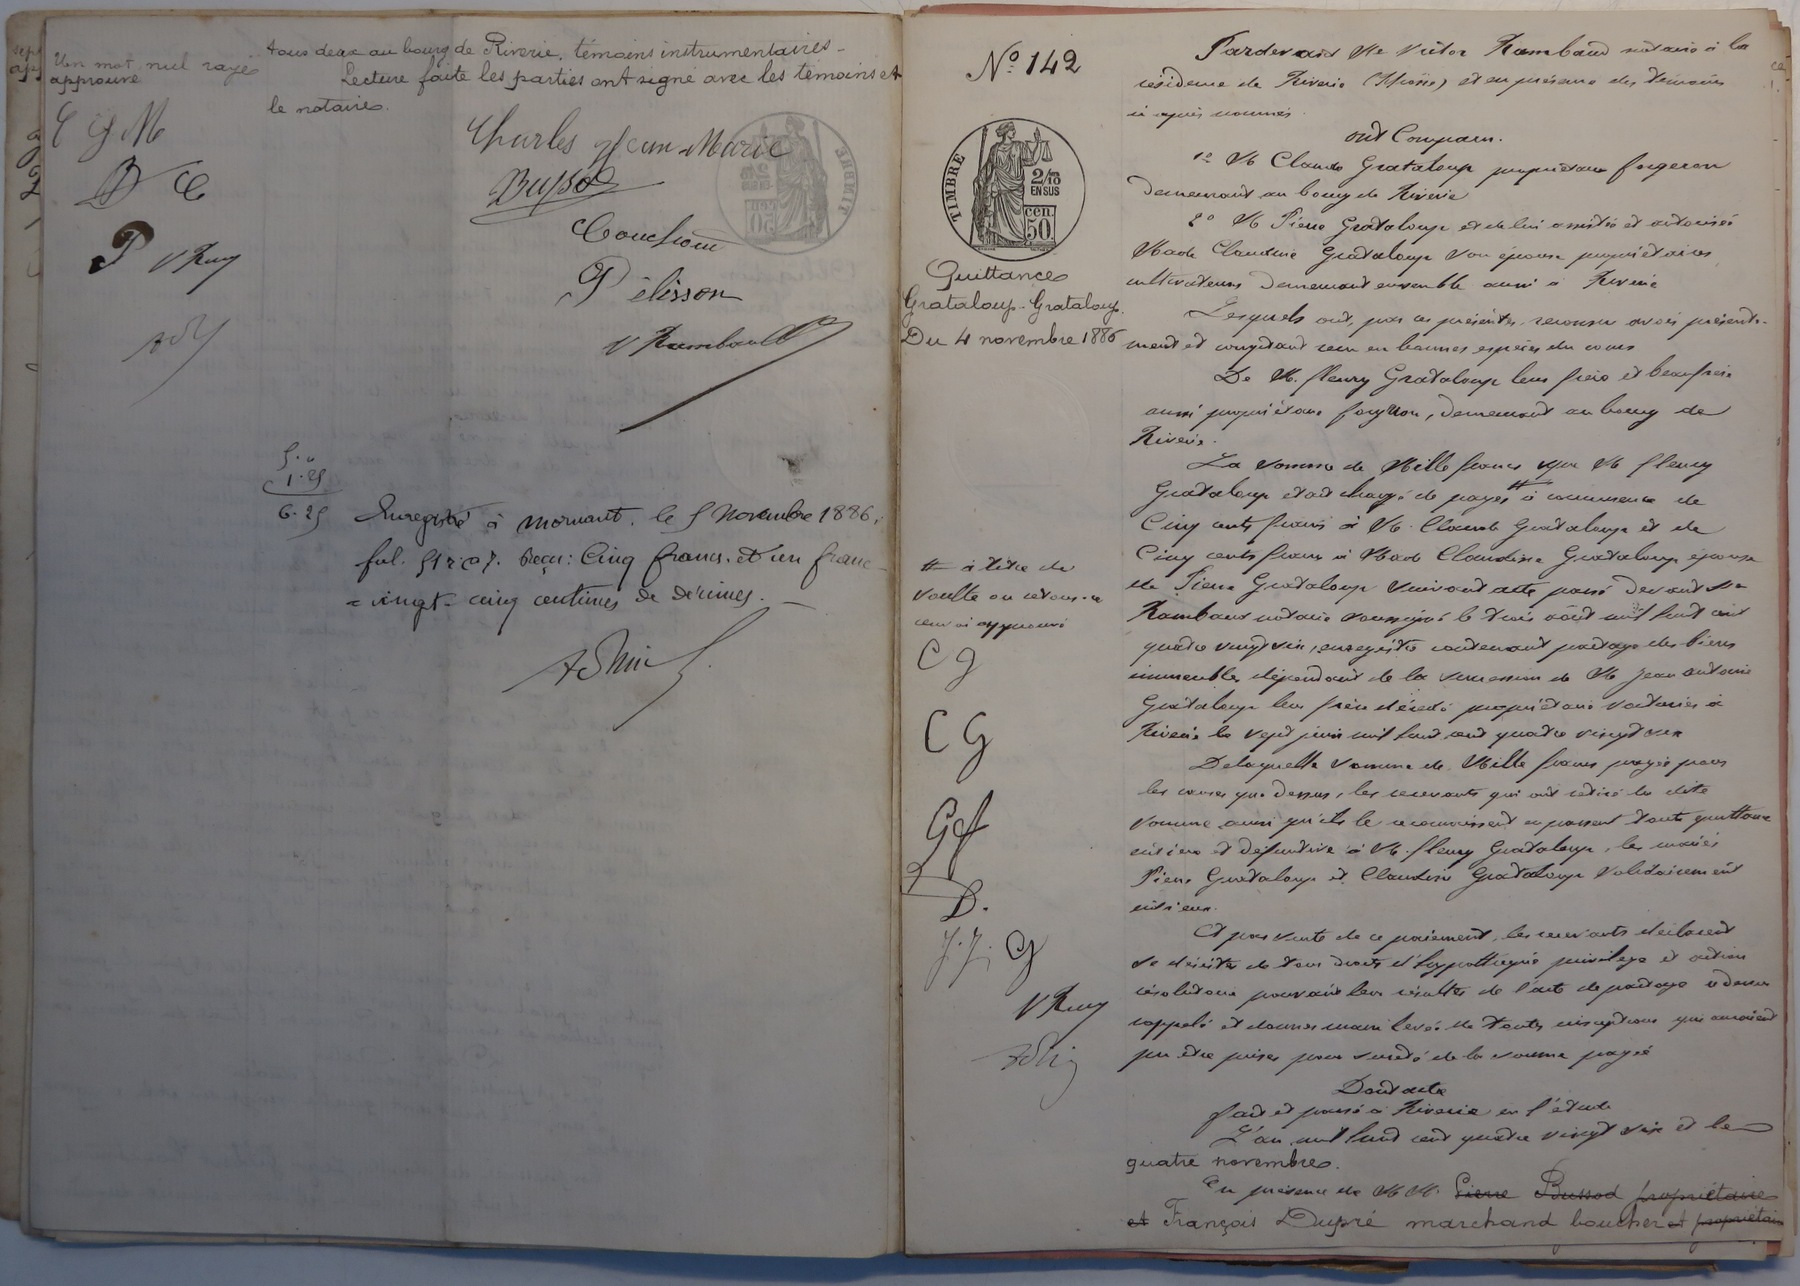 Un mot nul rayé
approuvé
C G M
B C
P VRay
tous deux au bourg de Riverie, témoins instrumentaires -
Lecture faite les parties ont signé avec les témoins et
le notaire.
Charles Jean-Marie
Bussod
Couchoud
Pélisson
V Rambaud
5. "
1. 25
6. 25
Enregistré à Mornant, le 5 Novembre 1886,
fol. 51 r. c. 7. Reçu: Cinq francs. et un franc
= vingt-cinq centimes de décimes. -
No 142
TIMBRE
2/10
EN SUS
cen.
50
Quittance
Grataloup-Grataloup.
Du 4 novembre 1886
à titre de
soulte ou retour
renvoi approuvé
C g
C G
Gf
D.
J. J. G
V Ray
Pardevant Me Victor Rambaud notaire à la
résidence de Riverie (Rhône) et en présence des témoins
ci après nommés.
ont Comparu.
1o M Claude Grataloup propriétaire forgeron
demeurant au bourg de Riverie
2o M Pierre Grataloup et de lui assistée et autorisée
Made Claudine Grataloup son épouse propriétaires
cultivateurs demeurant ensemble aussi à Riverie
Lesquels ont, par ces présentes, reconnu avoir présente-
ment et comptant reçu en bonnes espèces du cours
De M. fleury Grataloup leur frère et beau frère
aussi propriétaire forgeron, demeurant au bourg de
Riverie.
La somme de Mille francs que M fleury
Grataloup était chargé de payer à concurrence de
Cinq cents francs à M. Claude Grataloup et de
Cinq cents francs à Made Claudine Grataloup épouse
de Pierre Grataloup suivant acte passé devant Me
Rambaud notaire soussigné le trois août mil huit cent
quatre vingt six, enregistré contenant partage des biens
immeubles dépendant de la succession de M Jean Antoine
Grataloup leur frère décédé propriétaire à
Riverie le sept juin mil huit cent quatre vingt six
De laquelle somme de Mille francs payée pour
les causes que dessus, les recevants qui ont retiré la dite
somme ainsi qu'ils le reconnaissent en passent toute quittance
entière et définitive à M. fleury Grataloup, les mariés
Pierre Grataloup et Claudine Grataloup solidairement
entre eux.
Et par suite de ce paiement, les recevants déclarent
se désister de tous droits d'hypothèque privilège et action
résolutoire pouvant leur résulter de l'acte de partage ci dessus
rappelé et donner main levée de toutes inscriptions qui auraient
pu être prises pour sureté de la somme payée
Dont acte
fait et passé à Riverie en l'étude
L'an mil huit cent quatre vingt six et le
quatre novembre.
En présence de MM. Pierre Bussod propriétaire
et François Dupré marchand boucher et propriétaire